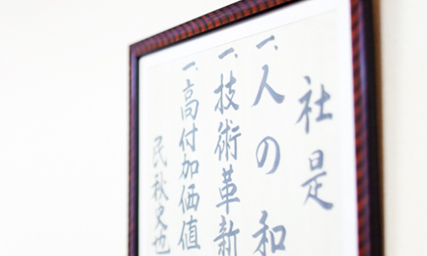 社是
一、人の和
一、技術革新
一、高付加価値
民秋史也